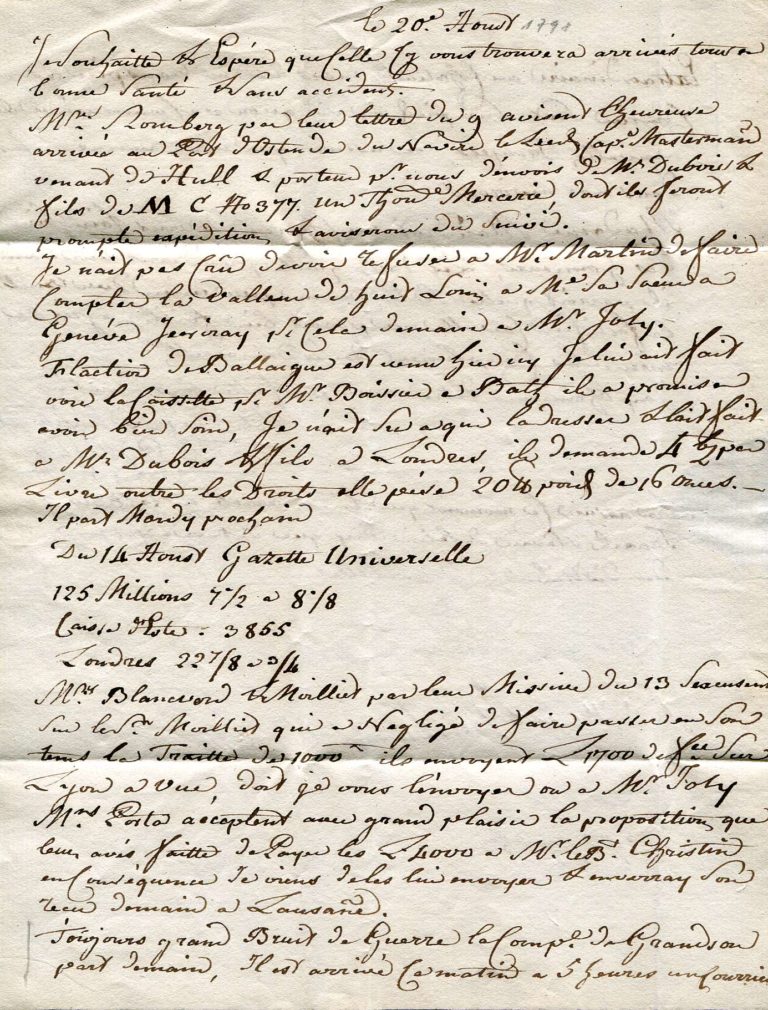 le 20e. Aoust 1791
Je Souhaitte & Espére que Celle Cy vous trouvera arrivés tous en
bonne Santé & Sans accident.
Mrs. Romberg par leur lettre du 9 avisent l'heureuse
arrivée au Port d'Ostende du Navire le Leeds Cap.e Masterman
venant de Hull & porteur pr. nous d'envois de Mrs Dubois &
fils de M C No 377 un Thon.d Mercerie, dont ils feront
prompte expédition & aviseront du Suivi.
Je n'ait pas Crû devoir refuser a Mr. Martin de faire
Compter la valleur de huit Loüis a Me Sa Soeur a
Genéve J'ecriray pr Cela demain a Mr Joly.
Flaction de Ballaigue est venu hier icy Je lui ait fait
voir la Caissette pr Mr. Boissier a Batz il a promis en
avoir bien Soin, Je n'ait Su a qui l'adresser & l'ait fait
a Mrs Dubois & fils a Londres, il demande 4 par
Livre outre les Droits elle pése 20 ℔ poids de 16 onces. —
Il part Mardy prochain
Du 14 Aoust Gazette Universelle
125 Millions 7 1/2 a 8 1/8
Caisse d'Este : 3855
Londres 22 7/8 a 3/4
Mrs Blancvord & Moilliet par leur Missive du 13 S'excusent
Sur le Sr. Moilliet qui a Negligé de faire passer en Son
tems la Traitte de 1000 ils envoyent L 1700 de fce Sur
Lyon a vue, doit je vous l'envoyer ou a Mr. Joly
Mrs Porta acceptent avec grand plaisir la proposition que
leur avés faitte de Payer les L 4000 a Mr. le Bt. Christin
en Conséquence Je viens de les lui envoyer & enverray Son
recu demain a Lausañe.
Toujours grand Bruit de Guerre la Comp.e de Grandson
part demain, Il est arrivé Ce matin a 5 heures un Courrier